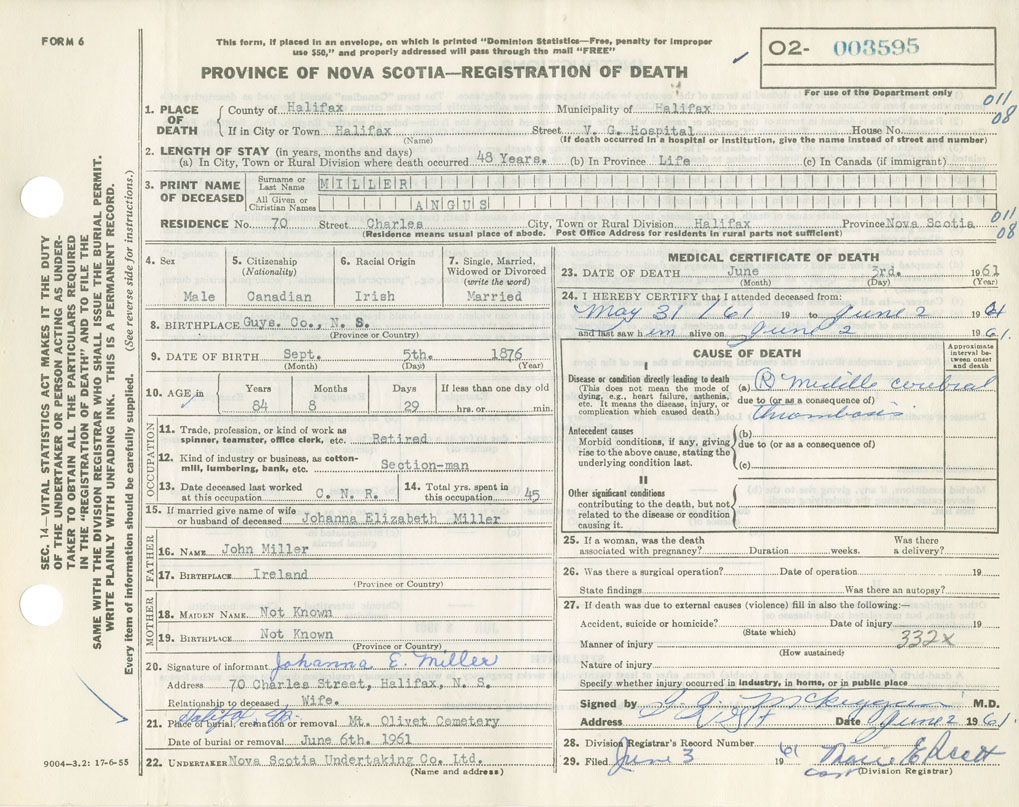 FORM 6
This form, if placed in an envelope, on which is printed "Dominion Statistics—Free, penalty for improper
use $50," and properly addressed will pass through the mail "FREE"
PROVINCE OF NOVA SCOTIA—REGISTRATION OF DEATH
02- 003595
For use of the Department only
011
08
1. PLACE OF DEATH
County of Halifax Municipality of Halifax
If in City or Town Halifax Street V. G. Hospital House No.
(Name) (If death occurred in a hospital or institution, give the name instead of street and number)
2. LENGTH OF STAY (in years, months and days)
(a) In City, Town or Rural Division where death occurred 48 Years. (b) In Province Life (c) In Canada (if immigrant)
3. PRINT NAME OF DECEASED
Surname or Last Name MILLER
All Given or Christian Names ANGUS
RESIDENCE No. 70 Street Charles City, Town or Rural Division Halifax Province Nova Scotia
011
08
(Residence means usual place of abode. Post Office Address for residents in rural parts not sufficient)
4. Sex
Male
5. Citizenship
(Nationality)
Canadian
6. Racial Origin
Irish
7. Single, Married,
Widowed or Divorced
(write the word)
Married
8. BIRTHPLACE Guys. Co., N. S.
(Province or Country)
9. DATE OF BIRTH Sept. 5th. 1876
(Month) (Day) (Year)
10. AGE in
Years Months Days If less than one day old
84 8 29 hrs. or min.
OCCUPATION
11. Trade, profession, or kind of work as
spinner, teamster, office clerk, etc. Retired
12. Kind of industry or business, as cotton-
mill, lumbering, bank, etc. Section-man
13. Date deceased last worked
at this occupation C. N. R.
14. Total yrs. spent in
this occupation 45
15. If married give name of wife
or husband of deceased Johanna Elizabeth Miller
FATHER
16. NAME John Miller
17. BIRTHPLACE Ireland
(Province or Country)
MOTHER
18. MAIDEN NAME Not Known
19. BIRTHPLACE Not Known
(Province or Country)
20. Signature of informant Johanna E. Miller
Address 70 Charles Street, Halifax, N. S.
Relationship to deceased Wife.
21. Place of burial, cremation or removal Mt. Olivet Cemetery
Date of burial or removal June 6th. 1961
22. UNDERTAKER Nova Scotia Undertaking Co. Ltd.
(Name and address)
MEDICAL CERTIFICATE OF DEATH
23. DATE OF DEATH June 3rd. 1961
(Month) (Day) (Year)
24. I HEREBY CERTIFY that I attended deceased from:
May 31 / 61 19 to June 2 1961
and last saw him alive on June 2 1961.
CAUSE OF DEATH
Approximate
interval be-
tween onset
and death
I
Disease or condition directly leading to death
(This does not mean the mode of
dying, e.g., heart failure, asthenia,
etc. It means the disease, injury, or
complication which caused death.)
(a) R Middle cerebral
due to (or as a consequence of)
thrombosis.
Antecedent causes
Morbid conditions, if any, giving
rise to the above cause, stating the
underlying condition last.
(b)
due to (or as a consequence of)
(c)
II
Other significant conditions
contributing to the death, but not
related to the disease or condition
causing it.
25. If a woman, was the death
associated with pregnancy? Duration weeks. Was there
a delivery?
26. Was there a surgical operation? Date of operation 19
State findings Was there an autopsy?
27. If death was due to external causes (violence) fill in also the following:—
Accident, suicide or homicide? Date of injury 19
(State which)
332x
Manner of injury
(How sustained)
Nature of injury
Specify whether injury occurred in industry, in home, or in public place
Signed by M.D.
Address Date June 2 1961.
28. Division Registrar's Record Number
29. Filed June 3 1961
(Division Registrar)
SEC. 14—VITAL STATISTICS ACT MAKES IT THE DUTY
OF THE UNDERTAKER OR PERSON ACTING AS UNDER-
TAKER TO OBTAIN ALL THE PARTICULARS REQUIRED
IN THE "REGISTRATION OF DEATH" AND TO FILE THE
SAME WITH THE DIVISION REGISTRAR WHO SHALL ISSUE THE BURIAL PERMIT.
WRITE PLAINLY WITH UNFADING INK. THIS IS A PERMANENT RECORD.
Every item of information should be carefully supplied. (See reverse side for instructions.)
9004-3.2: 17-6-55